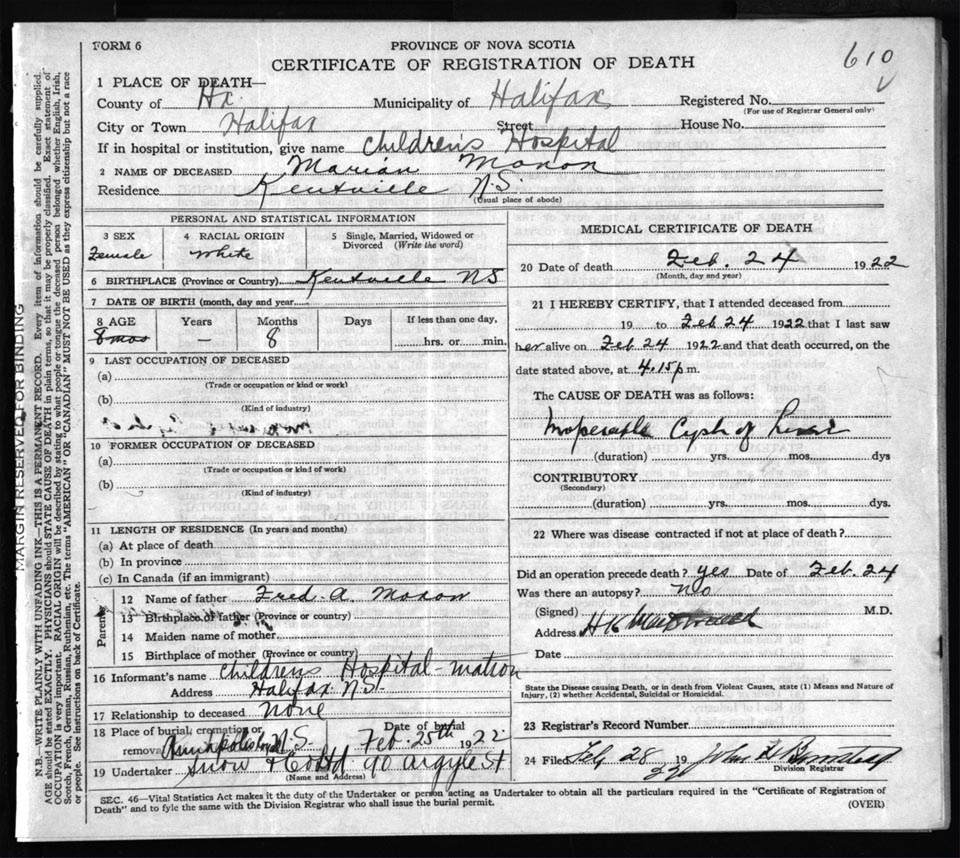 FORM 6
PROVINCE OF NOVA SCOTIA
CERTIFICATE OF REGISTRATION OF DEATH
610
1 PLACE OF DEATH—
County of Hx. Municipality of Halifax Registered No.
(For use of Registrar General only)
City or Town Halifax Street House No.
If in hospital or institution, give name Children's Hospital
2 NAME OF DECEASED Marian Moxon
Residence Kentville N.S.
(Usual place of abode)
PERSONAL AND STATISTICAL INFORMATION
3 SEX 4 RACIAL ORIGIN 5 Single, Married, Widowed or Divorced (Write the word)
Female White
6 BIRTHPLACE (Province or Country) Kentville NS
7 DATE OF BIRTH (month, day and year)
8 AGE Years Months Days If less than one day,
8 mos — 8 hrs. or min.
9 LAST OCCUPATION OF DECEASED
(a)
(Trade or occupation or kind or work)
(b)
(Kind of industry)
10 FORMER OCCUPATION OF DECEASED
(a)
(Trade or occupation or kind of work)
(b)
(Kind of industry)
11 LENGTH OF RESIDENCE (In years and months)
(a) At place of death
(b) In province
(c) In Canada (if an immigrant)
Parents
12 Name of father Fred. A. Moxon
13 Birthplace of father (Province or country)
14 Maiden name of mother
15 Birthplace of mother (Province or country)
16 Informant's name Childrens Hospital - matron
Address Halifax N.S.
17 Relationship to deceased None
18 Place of burial, cremation or removal N.S. Date of burial Feb. 25th 1922
19 Undertaker Snow & Co Ltd 90 Argyle St
(Name and Address)
MEDICAL CERTIFICATE OF DEATH
20 Date of death Feb. 24 1922
(Month, day and year)
21 I HEREBY CERTIFY, that I attended deceased from
19 to Feb 24 1922 that I last saw
her alive on Feb 24 1922 and that death occurred, on the
date stated above, at 4.15 p m.
The CAUSE OF DEATH was as follows:
Inoperable Cysts of Liver
(duration) yrs. mos. dys
CONTRIBUTORY
(Secondary)
(duration) yrs. mos. dys.
22 Where was disease contracted if not at place of death?
Did an operation precede death? yes Date of Feb. 24
Was there an autopsy? No
(Signed) M.D.
Address
Date
State the Disease causing Death, or in death from Violent Causes, state (1) Means and Nature of
Injury, (2) whether Accidental, Suicidal or Homicidal.
23 Registrar's Record Number
24 Filed Feb 28 19 22
Division Registrar
SEC. 46—Vital Statistics Act makes it the duty of the Undertaker or person acting as Undertaker to obtain all the particulars required in the "Certificate of Registration of
Death" and to fyle the same with the Division Registrar who shall issue the burial permit.
(OVER)
MARGIN RESERVED FOR BINDING
N.B.—WRITE PLAINLY WITH UNFADING INK—THIS IS A PERMANENT RECORD. Every item of information should be carefully supplied.
AGE should be stated EXACTLY. PHYSICIANS should STATE CAUSE OF DEATH in plain terms, so that it may be properly classified. Exact statement of
OCCUPATION is very important. RACIAL ORIGIN will be described by stating to what people or tongue the deceased person belonged whether English, Irish,
Scotch, French, German, Russian, Ruthenian, etc. The terms "AMERICAN" OR "CANADIAN" MUST NOT BE USED as they express citizenship but not a race
or people. See instructions on back of Certificate.